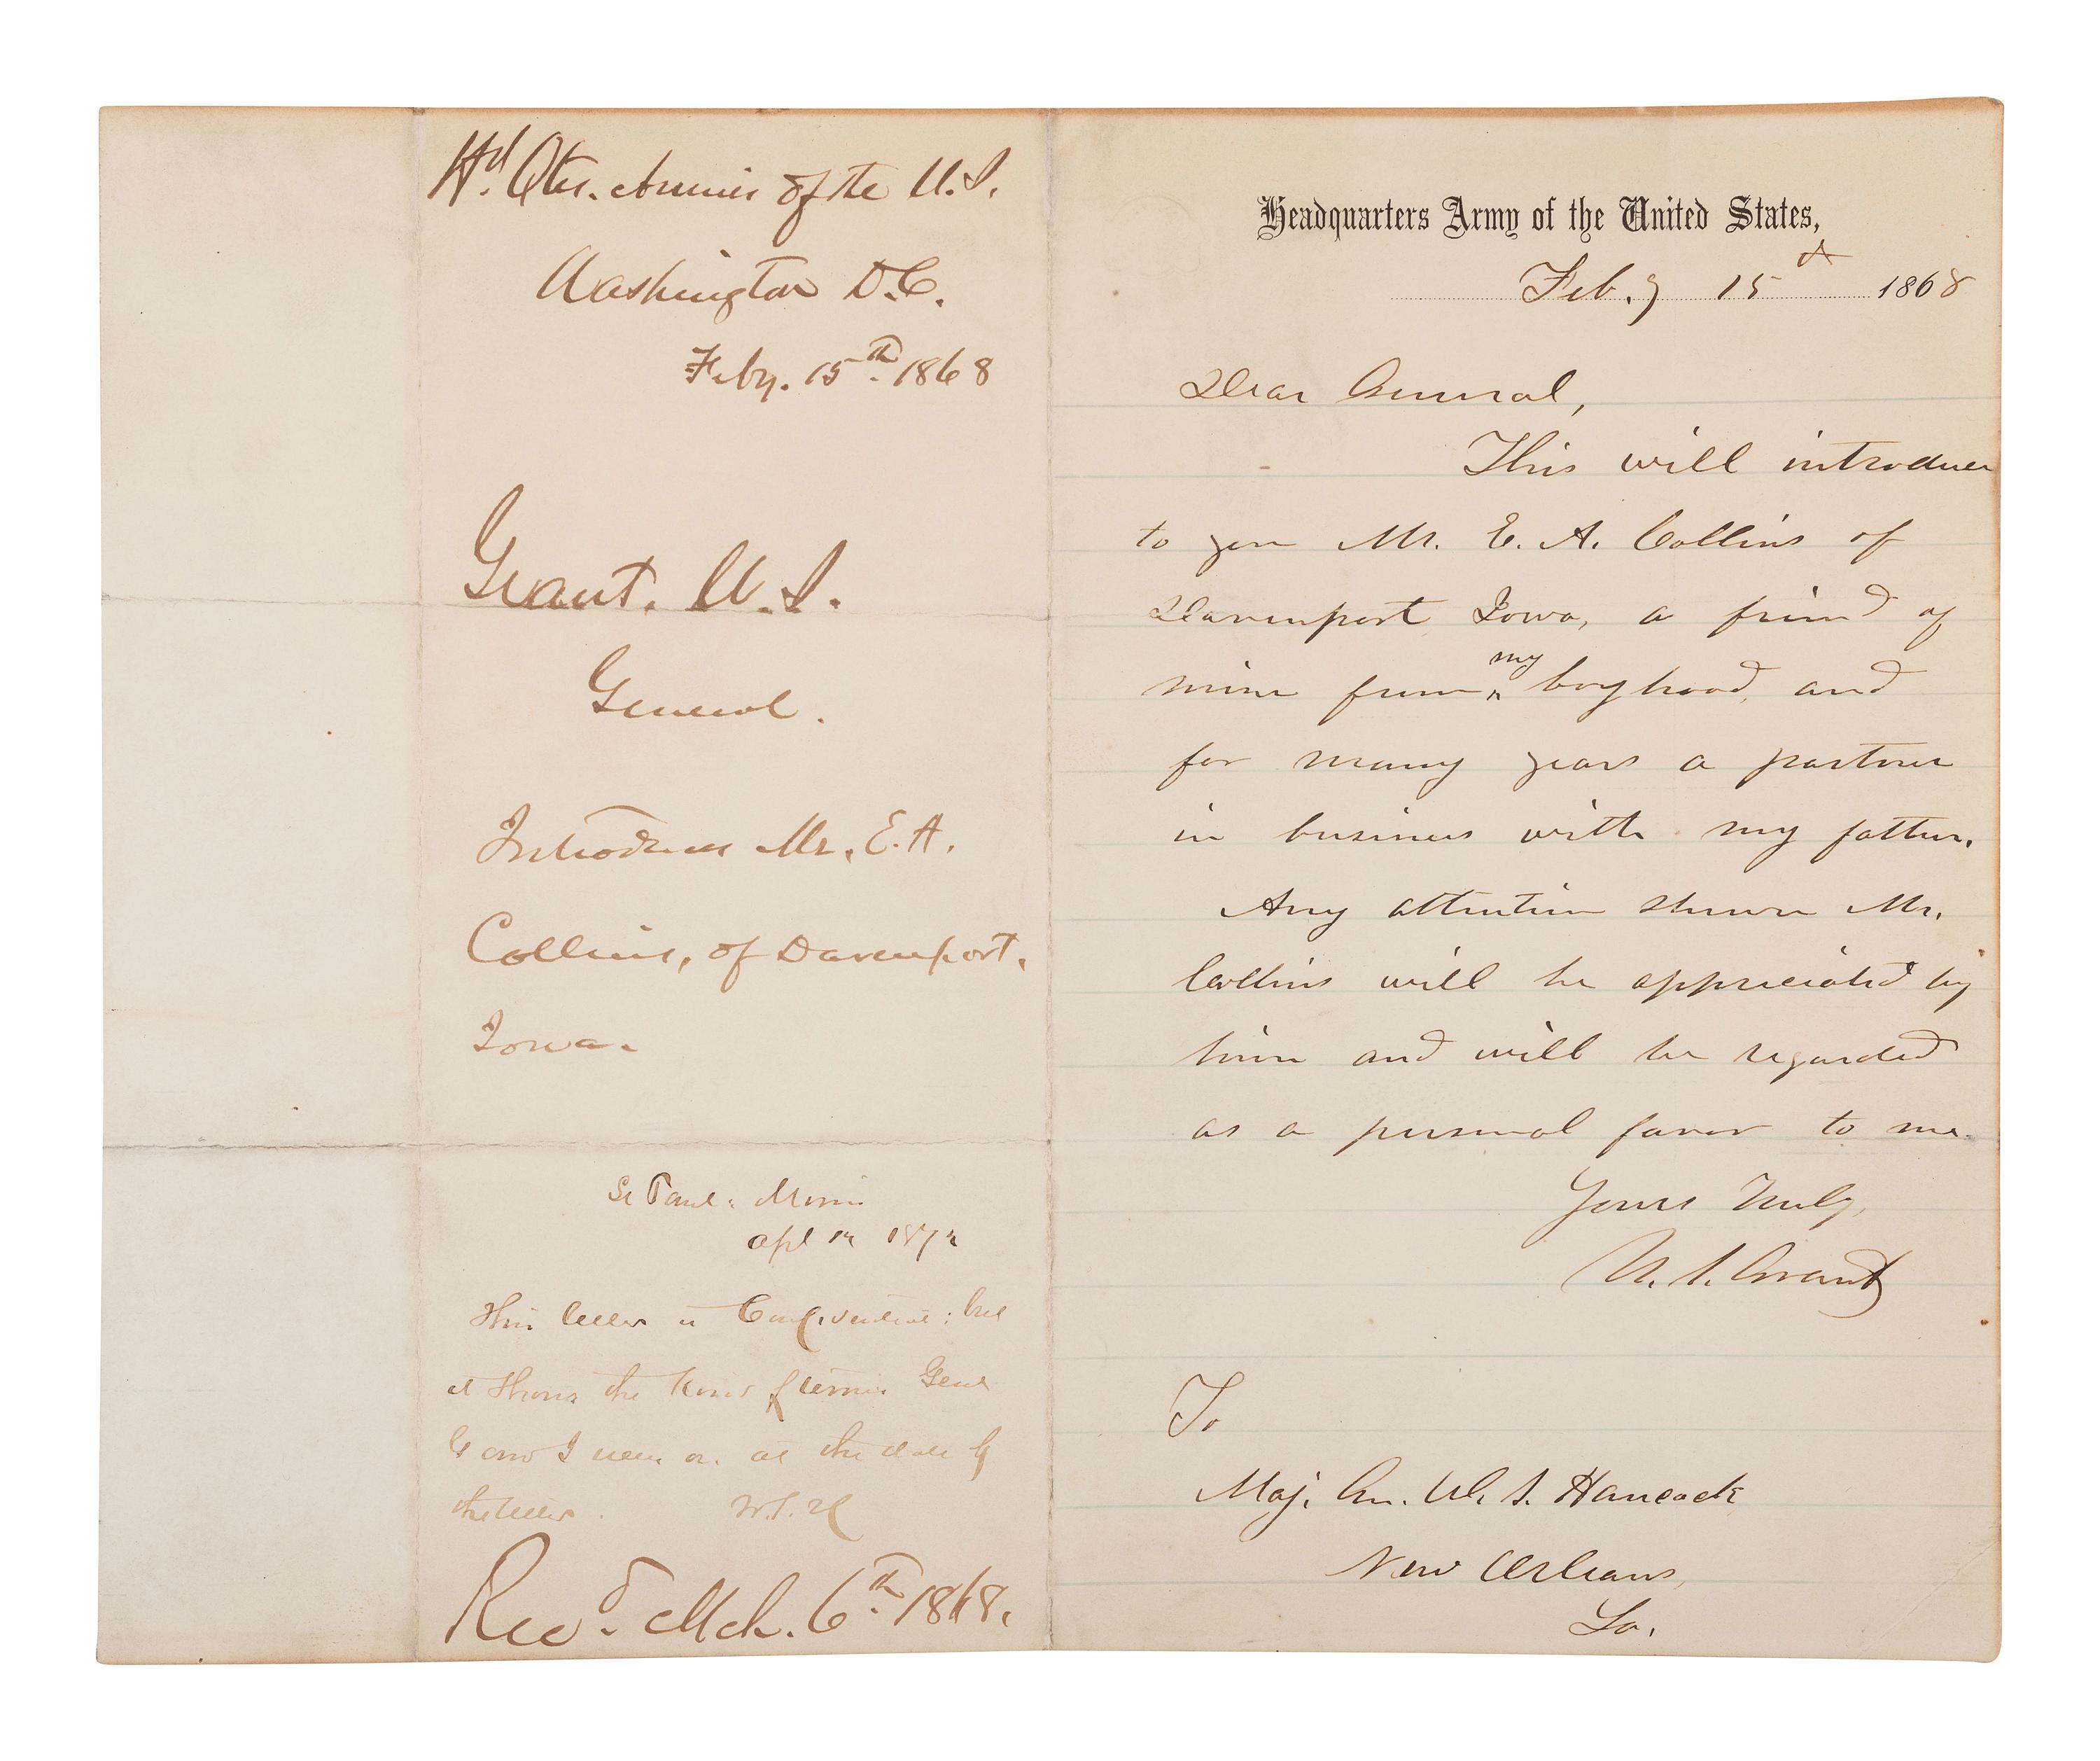 Hd. Qtrs. Armies of the U.S.
Washington D.C.
Feby. 15th. 1868
Grant. U.S.
General.
Introduces Mr. E.A.
Collins, of Davenport.
Iowa.
St Paul: Minn
Apl 1872
This letter is ; but
it shows the terms Genl
G and I were on at the date of
the letter. W.S.H
Recd. Mch. 6th. 1868.
Headquarters Army of the United States,
Feb.y 15th 1868
Dear General,
This will introduce
to you Mr. E. A. Collins of
Davenport Iowa, a friend of
mine from my boyhood, and
for many years a partner
in business with my father.
Any attention shown Mr.
Collins will be appreciated by
him and will be regarded
as a personal favor to me.
Yours Truly,
U. S. Grant
To
Maj. Gn. W. S. Hancock
New Orleans,
La.